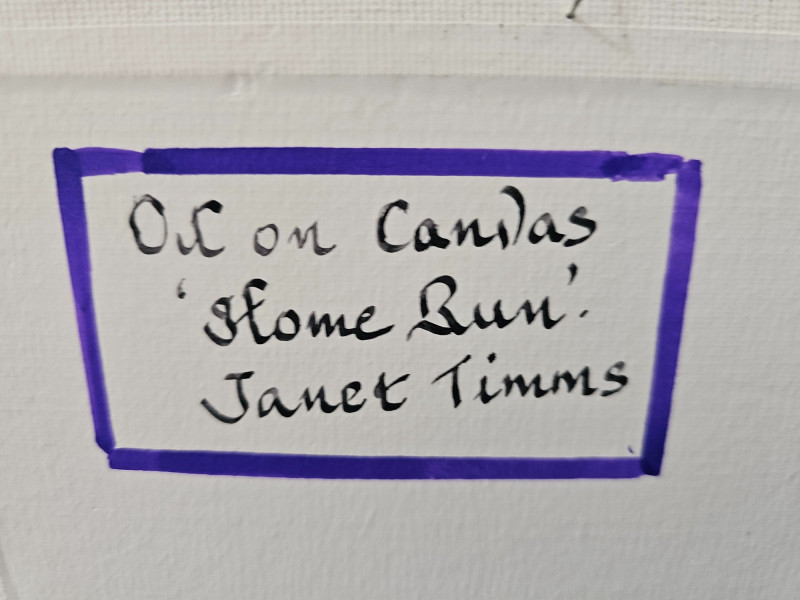 Oil on Canvas
'Home Run'.
Janet Timms